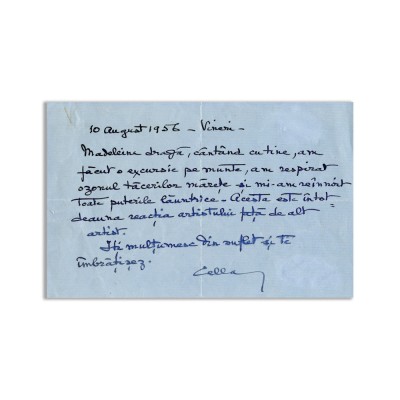 10 August 1956 - Vineri -
Madeleine dragă, cântând cu tine, am
făcut o excursie pe munte, am respirat
ozonul tăcerilor mărețe și mi-am reînnoit
toate puterile lăuntrice - Acesta este întot-
deauna reacția artistului față de alt
artist.
Îți mulțumesc din suflet și te
îmbrățișez.
Cella